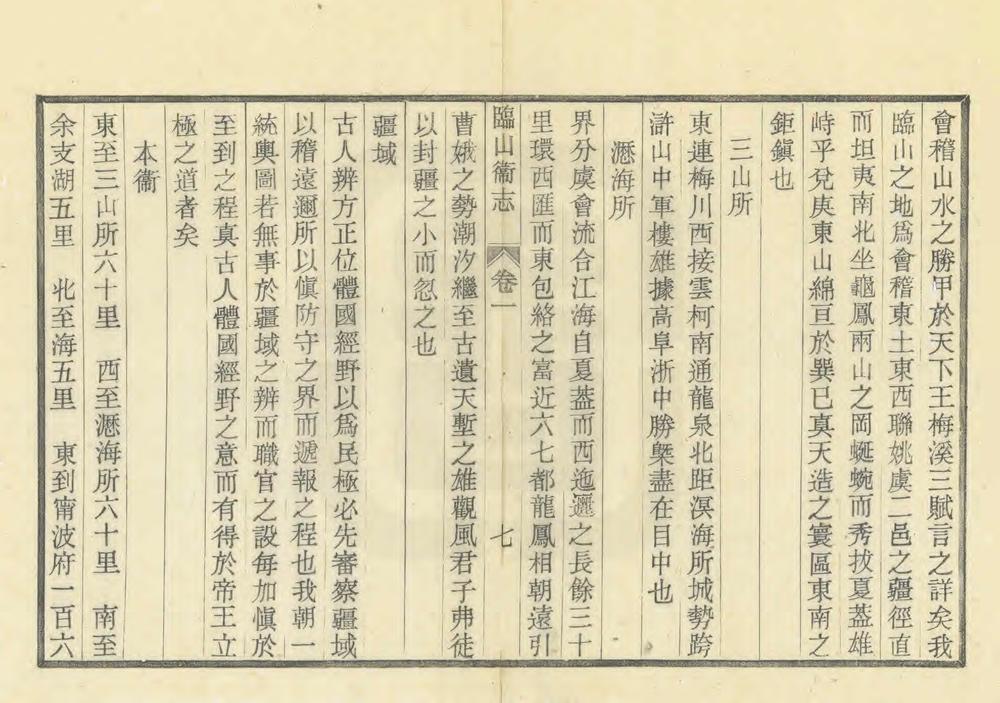 會稽山水之勝甲於天下王梅溪三賦言之詳矣我
臨山之地爲會稽東土東西聯姚虞二邑之疆徑直
而坦夷南北坐龜鳳兩山之岡蜒蜿而秀拔夏葢雄
峙乎兌庚東山綿亘於巽巳眞天造之寰區東南之
鉅鎭也
三山所
東連梅川西接雲柯南通龍泉北距溟海所城勢跨
滸山中軍樓雄據高阜浙中勝槩盡在目中也
瀝海所
界分虞會流合江海自夏葢而西迤邐之長餘三十
里環西匯而東包絡之富近六七都龍鳳相朝遠引
臨山衞志 卷一 七
曹娥之勢潮汐繼至古遺天塹之雄觀風君子弗徒
以封疆之小而忽之也
疆域
古人辨方正位體國經野以爲民極必先審察疆域
以稽遠邇所以愼防守之界而遞報之程也我朝一
統輿圖若無事於疆域之辨而職官之設每加愼於
至到之程眞古人體國經野之意而有得於帝王立
極之道者矣
本衞
東至三山所六十里 西至瀝海所六十里 南至
余支湖五里 北至海五里 東到甯波府一百六